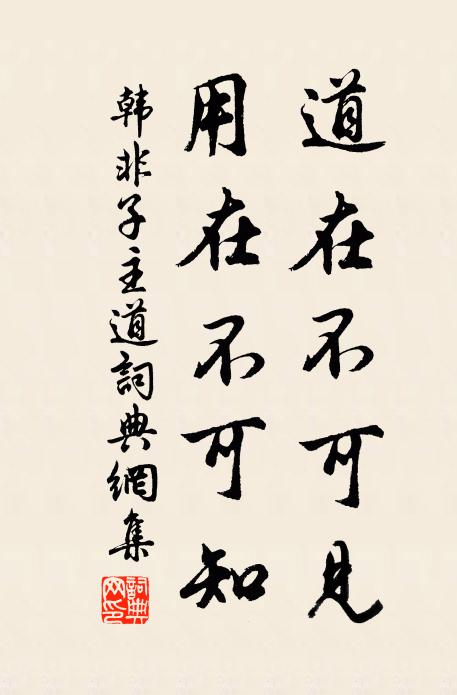 道在不可見
用在不可知
韩非子主道詞典網集
詞典网印